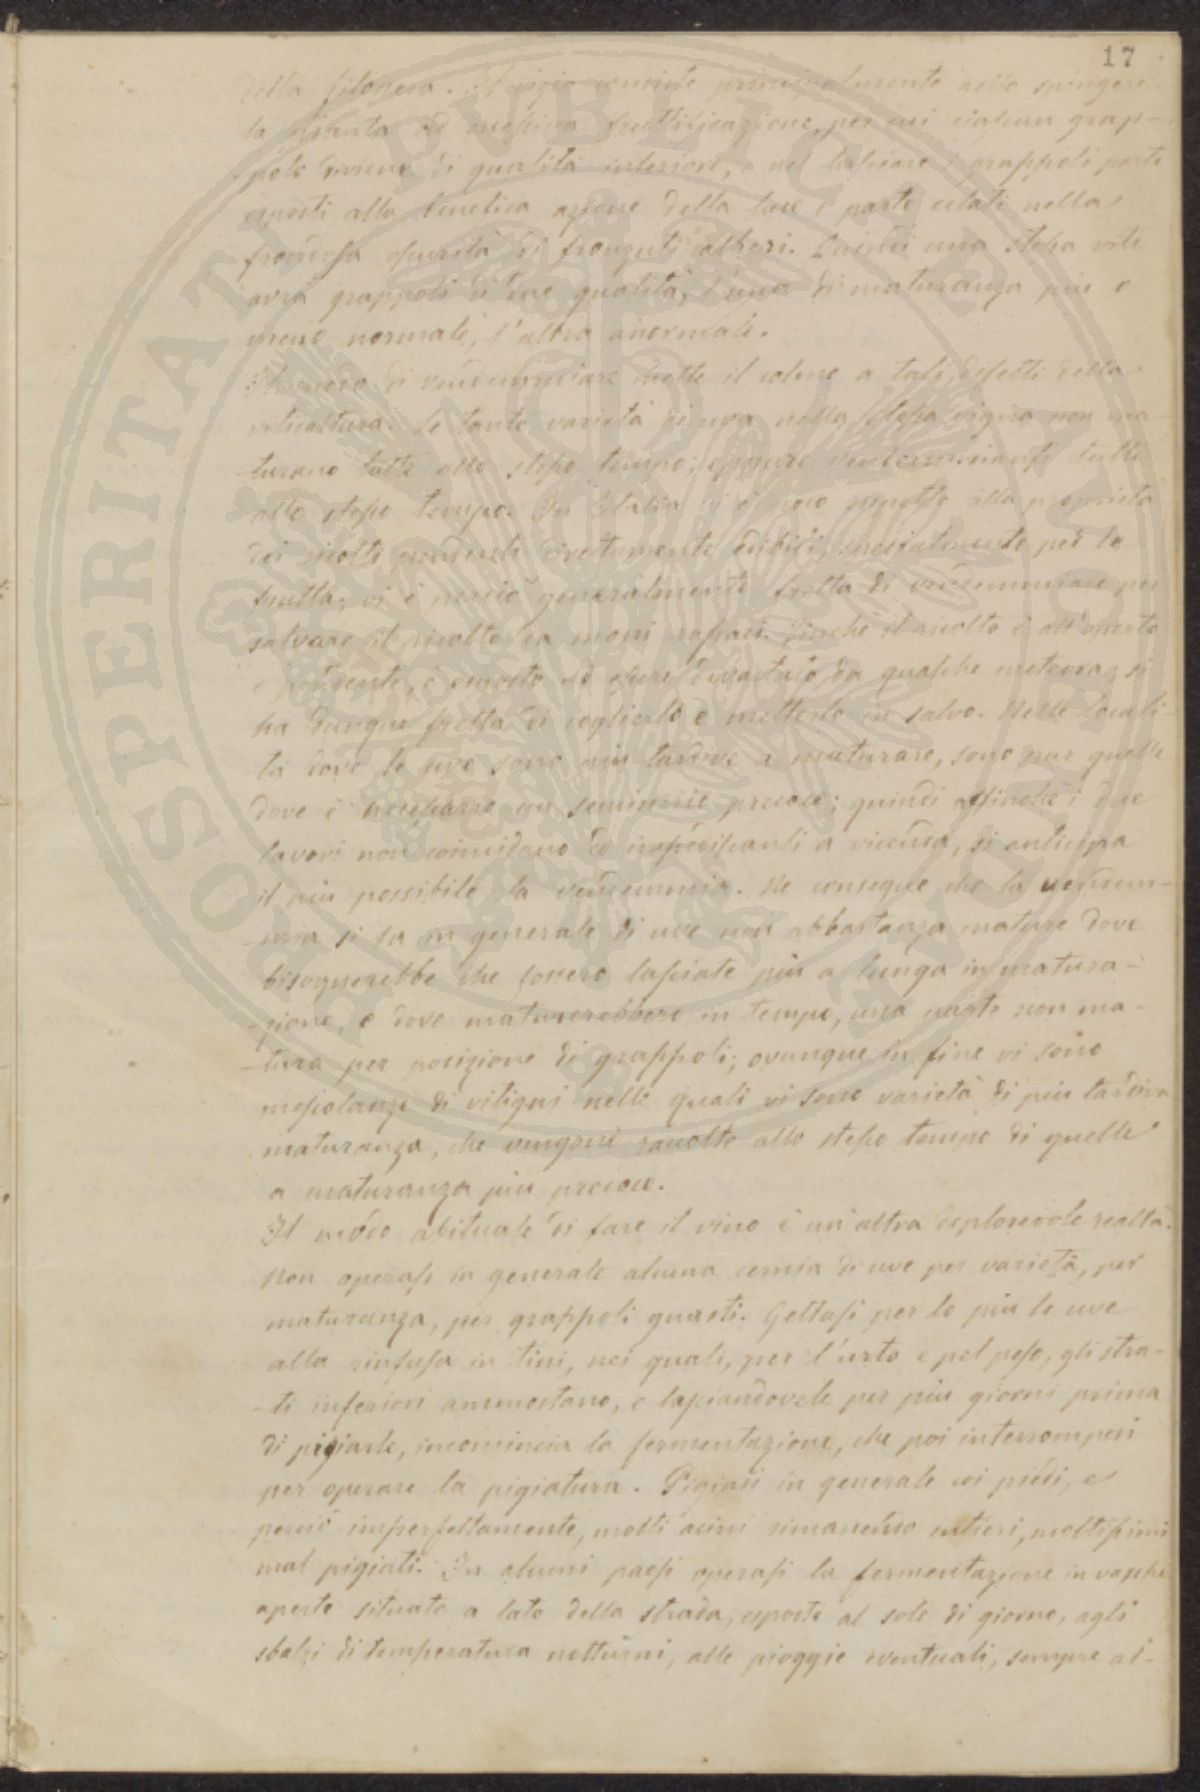 17
della fillossera. Il vizio consiste principalmente nello spingere
la pianta ad eccessiva fruttificazione, per cui ciascun grap-
-polo riesce di qualità inferiore, e nel lasciare i grappoli parte
esposti alla benefica azione della luce e parte celati nella
frondosa oscurità di fronzuti alberi. Quindi una stessa vite
avrà grappoli di due qualità, l'una di maturanza più o
meno normale, l'altra anormale.
Il modo di vendemmiare mette il colmo a tali difetti della
viticoltura. Le tante varietà di uva nella stessa vigna non ma-
-turano tutte allo stesso tempo; eppure vendemmiansi tutte
allo stesso tempo. In Italia vi è poco rispetto alla proprietà
dei ricolti pendenti direttamente edibili, specialmente per le
frutta; vi è perciò generalmente fretta di vendemmiare per
salvare il ricolto da mani rapaci. Finchè il ricolto è all'aperto
e pendente, è esposto ad essere devastato da qualche meteora; si
ha dunque fretta di coglierlo e metterlo in salvo. Nelle locali-
-tà dove le uve sono più tardive a maturare, sono pur quelle
dove è necessario un seminerio precoce; quindi affinchè i due
lavori non coincidano ed impediscansi a vicenda, si anticipa
il più possibile la vendemmia. Ne consegue che la vendem-
-mia si fa in generale di uve non abbastanza mature dove
bisognerebbe che fossero lasciate più a lungo in matura-
-zione, e dove maturerebbero in tempo, una parte non ma-
-tura per posizione di grappoli; ovunque in fine vi sono
mescolanze di vitigni nelle quali vi sono varietà di più tardiva
maturanza, che vengono raccolte allo stesso tempo di quelle
a maturanza più precoce.
Il modo abituale di fare il vino è un'altra deplorevole realtà.
Non operasi in generale alcuna cernia di uve per varietà, per
maturanza, per grappoli guasti. Gettasi per lo più le uve
alla rinfusa in tini, nei quali, per l'urto e pel peso, gli stra-
-ti inferiori ammostano, e lasciandovele per più giorni prima
di pigiarle, incomincia la fermentazione, che poi interrompesi
per operare la pigiatura. Pigiasi in generale coi piedi, e
perciò imperfettamente, molti acini rimanendo intieri, moltissimi
mal pigiati. In alcuni paesi operasi la fermentazione in vasche
aperte situate a lato della strada, esposte al sole di giorno, agli
sbalzi di temperatura notturni, alle pioggie eventuali, sempre al-
PROSPERITATI PVBLICAE